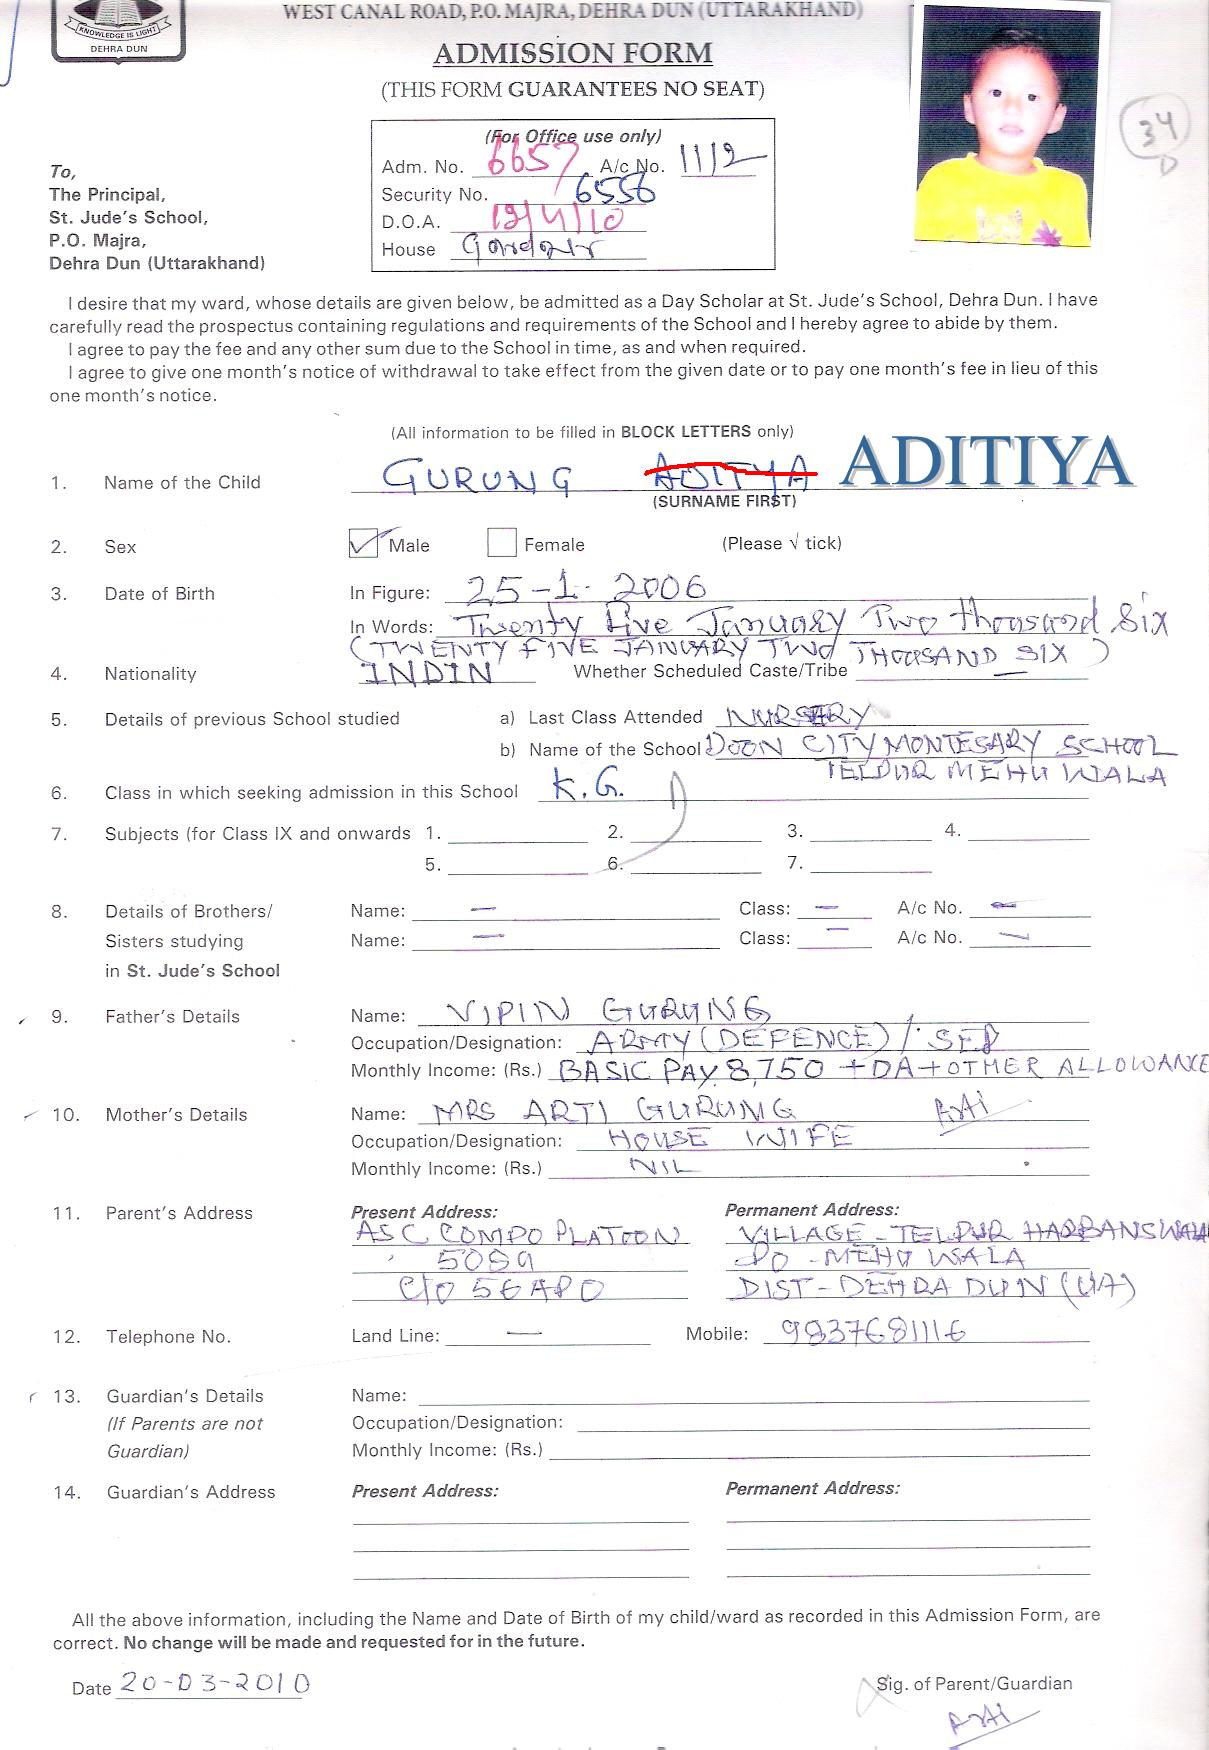 KNOWLEDGE IS LIGHT
DEHRA DUN
WEST CANAL ROAD, P.O. MAJRA, DEHRA DUN (UTTARAKHAND)
ADMISSION FORM
(THIS FORM GUARANTEES NO SEAT)
34
D
(For Office use only)
Adm. No. 6657 A/c No. 11112
Security No. 6556
D.O.A. 19/4/10
House
To,
The Principal,
St. Jude's School,
P.O. Majra,
Dehra Dun (Uttarakhand)
I desire that my ward, whose details are given below, be admitted as a Day Scholar at St. Jude's School, Dehra Dun. I have
carefully read the prospectus containing regulations and requirements of the School and I hereby agree to abide by them.
I agree to pay the fee and any other sum due to the School in time, as and when required.
I agree to give one month's notice of withdrawal to take effect from the given date or to pay one month's fee in lieu of this
one month's notice.
(All information to be filled in BLOCK LETTERS only)
1. Name of the Child GURUNG ADITYA ADITIYA
(SURNAME FIRST)
2. Sex Male Female (Please √ tick)
3. Date of Birth In Figure: 25-1-2006
In Words: Twenty Five January Two thousand Six
(TWENTY FIVE JANUARY TWO THOUSAND SIX)
4. Nationality INDIN Whether Scheduled Caste/Tribe —
5. Details of previous School studied a) Last Class Attended NURSERY
b) Name of the School DOON CITY MONTESARY SCHOOL
TELPUR MEHU WALA
6. Class in which seeking admission in this School K.G.
7. Subjects (for Class IX and onwards 1. 2. 3. 4.
5. 6. 7.
8. Details of Brothers/ Name: — Class: — A/c No. —
Sisters studying Name: — Class: — A/c No. —
in St. Jude's School
9. Father's Details Name: VIPIN GURUNG
Occupation/Designation: ARMY (DEFENCE) / SEP
Monthly Income: (Rs.) BASIC PAY 8,750 +DA+OTHER ALLOWANCE
10. Mother's Details Name: MRS ARTI GURUNG
Occupation/Designation: HOUSE WIFE
Monthly Income: (Rs.) NIL
11. Parent's Address Present Address: Permanent Address:
ASC COMPO PLATOON VILLAGE - TELPUR HARBANSWALA
5089 PO - MEHU WALA
C/O 56 APO DIST - DEHRA DUN (UA)
12. Telephone No. Land Line: — Mobile: 9837681116
13. Guardian's Details Name:
(If Parents are not Occupation/Designation:
Guardian) Monthly Income: (Rs.)
14. Guardian's Address Present Address: Permanent Address:
All the above information, including the Name and Date of Birth of my child/ward as recorded in this Admission Form, are
correct. No change will be made and requested for in the future.
Date 20-03-2010 Sig. of Parent/Guardian